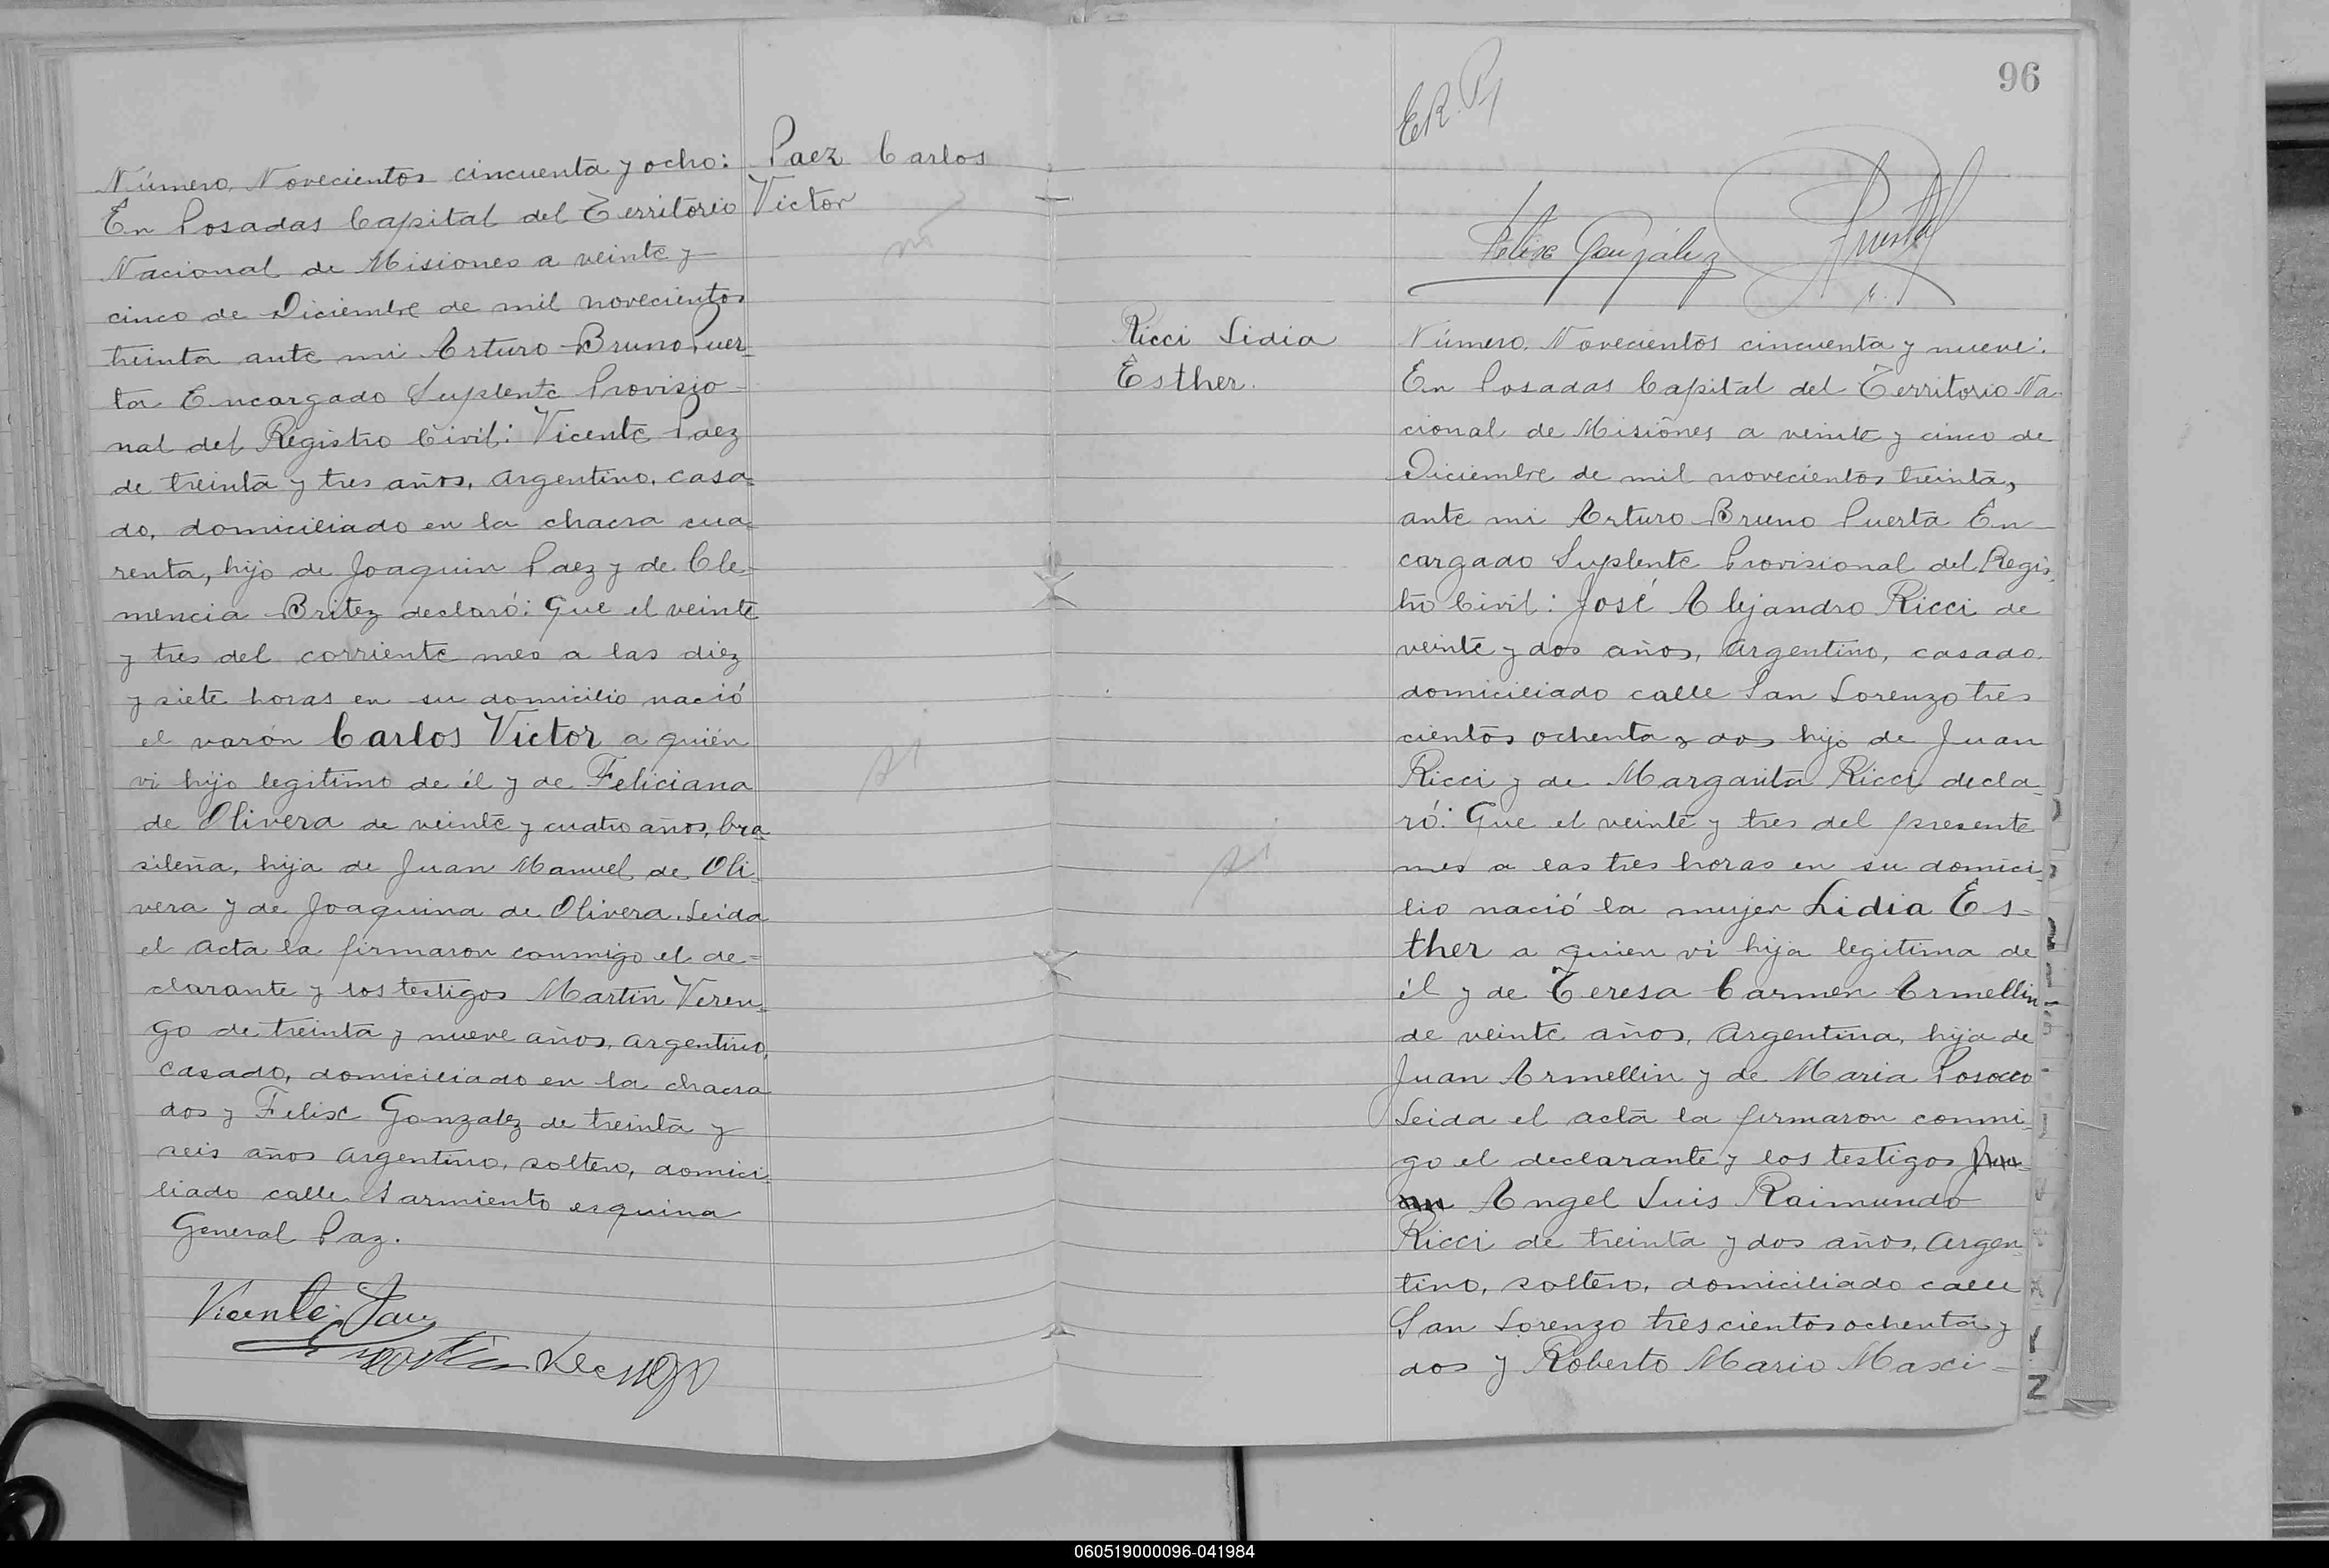 Paez Carlos
Victor
Número Novecientos cincuenta y ocho:
En Posadas Capital del Territorio
Nacional de Misiones a veinte y
cinco de Diciembre de mil novecientos
treinta ante mi Arturo Bruno Puer-
ta Encargado Suplente Provisio-
nal del Registro Civil: Vicente Paez
de treinta y tres años, argentino, casa-
do, domiciliado en la chacra cua-
renta, hijo de Joaquin Paez y de Cle-
mencia Britez declaró: Que el veinte
y tres del corriente mes a las diez
y siete horas en su domicilio nació
el varón Carlos Victor a quién
vi hijo legitimo de él y de Feliciana
de Olivera de veinte y cuatro años, bra-
sileña, hija de Juan Manuel de Oli-
vera y de Joaquina de Olivera. Leida
el acta la firmaron conmigo el de-
clarante y los testigos Martin Veren-
go de treinta y nueve años, argentino,
casado, domiciliado en la chacra
dos y Felix Gonzalez de treinta y
seis años argentino, soltero, domici-
liado calle Sarmiento esquina
General Paz.
Vicente Paez
Martin Verengo
96
Felix González
Puerta
Ricci Lidia
Esther.
Número Novecientos cincuenta y nueve:
En Posadas Capital del Territorio Na-
cional de Misiones a veinte y cinco de
Diciembre de mil novecientos treinta,
ante mi Arturo Bruno Puerta En-
cargado Suplente Provisional del Regis-
tro Civil: José Alejandro Ricci de
veinte y dos años, argentino, casado,
domiciliado calle San Lorenzo tres
cientos ochenta y dos hijo de Juan
Ricci y de Margarita Ricci decla-
ró: Que el veinte y tres del presente
mes a las tres horas en su domici-
lio nació la mujer Lidia Es-
ther a quien vi hija legitima de
él y de Teresa Carmen Armellin
de veinte años, argentina, hija de
Juan Armellin y de Maria Posocco
Leida el acta la firmaron conmi-
go el declarante y los testigos
Angel Luis Raimundo
Ricci de treinta y dos años, argen-
tino, soltero, domiciliado calle
San Lorenzo trescientos ochenta y
dos y Roberto Mario Masci-
060519000096-041984